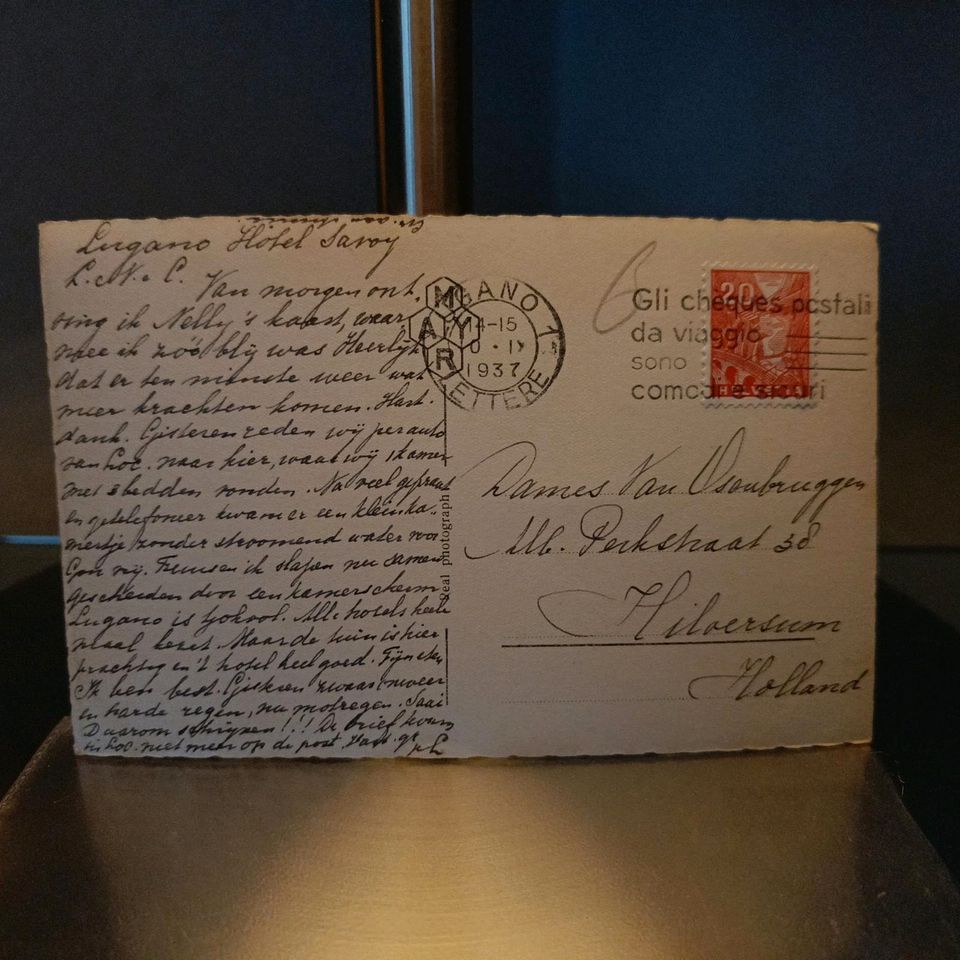 Gr. aan
Lugano Hôtel Savoy
L. e N. e C. Van morgen ont,
ving ik Nelly's kaart, waar
mee ik zóó blij was Heerlijk
dat er ten minste weer wat
meer krachten komen. Hart.
dank. Gisteren reden wij per auto
van Loc. naar hier, waar wij 1 kamer
met 3 bedden vonden. Na veel gepraat
en getelefoneer kwam er een klein ka,
mertje zonder stroomend water voor
vrij. en ik slapen nu samen
gescheiden door een kamerscherm
Lugano is tjokvol. Alle hotels hele
maal bezet. Maar de tuin is hier
prachtig en 't hotel heel goed. Fijn eten
Ik ben best. Gisteren zwaar onweer
en harde regen, nu motregen. Saai
Daarom schrijven!!! De brief kwam
in Loc. niet meer op de post. Hart. gr
L
MAYR
Real photograph
LUGANO 1
14-15
IX
1937
LETTERE
6
Gli chèques postali
da viaggio
sono
comodi e sicuri
20
HELVETIA
Dames Van Osenbruggen
Alb. Perkstraat 38
Hilversum
Holland